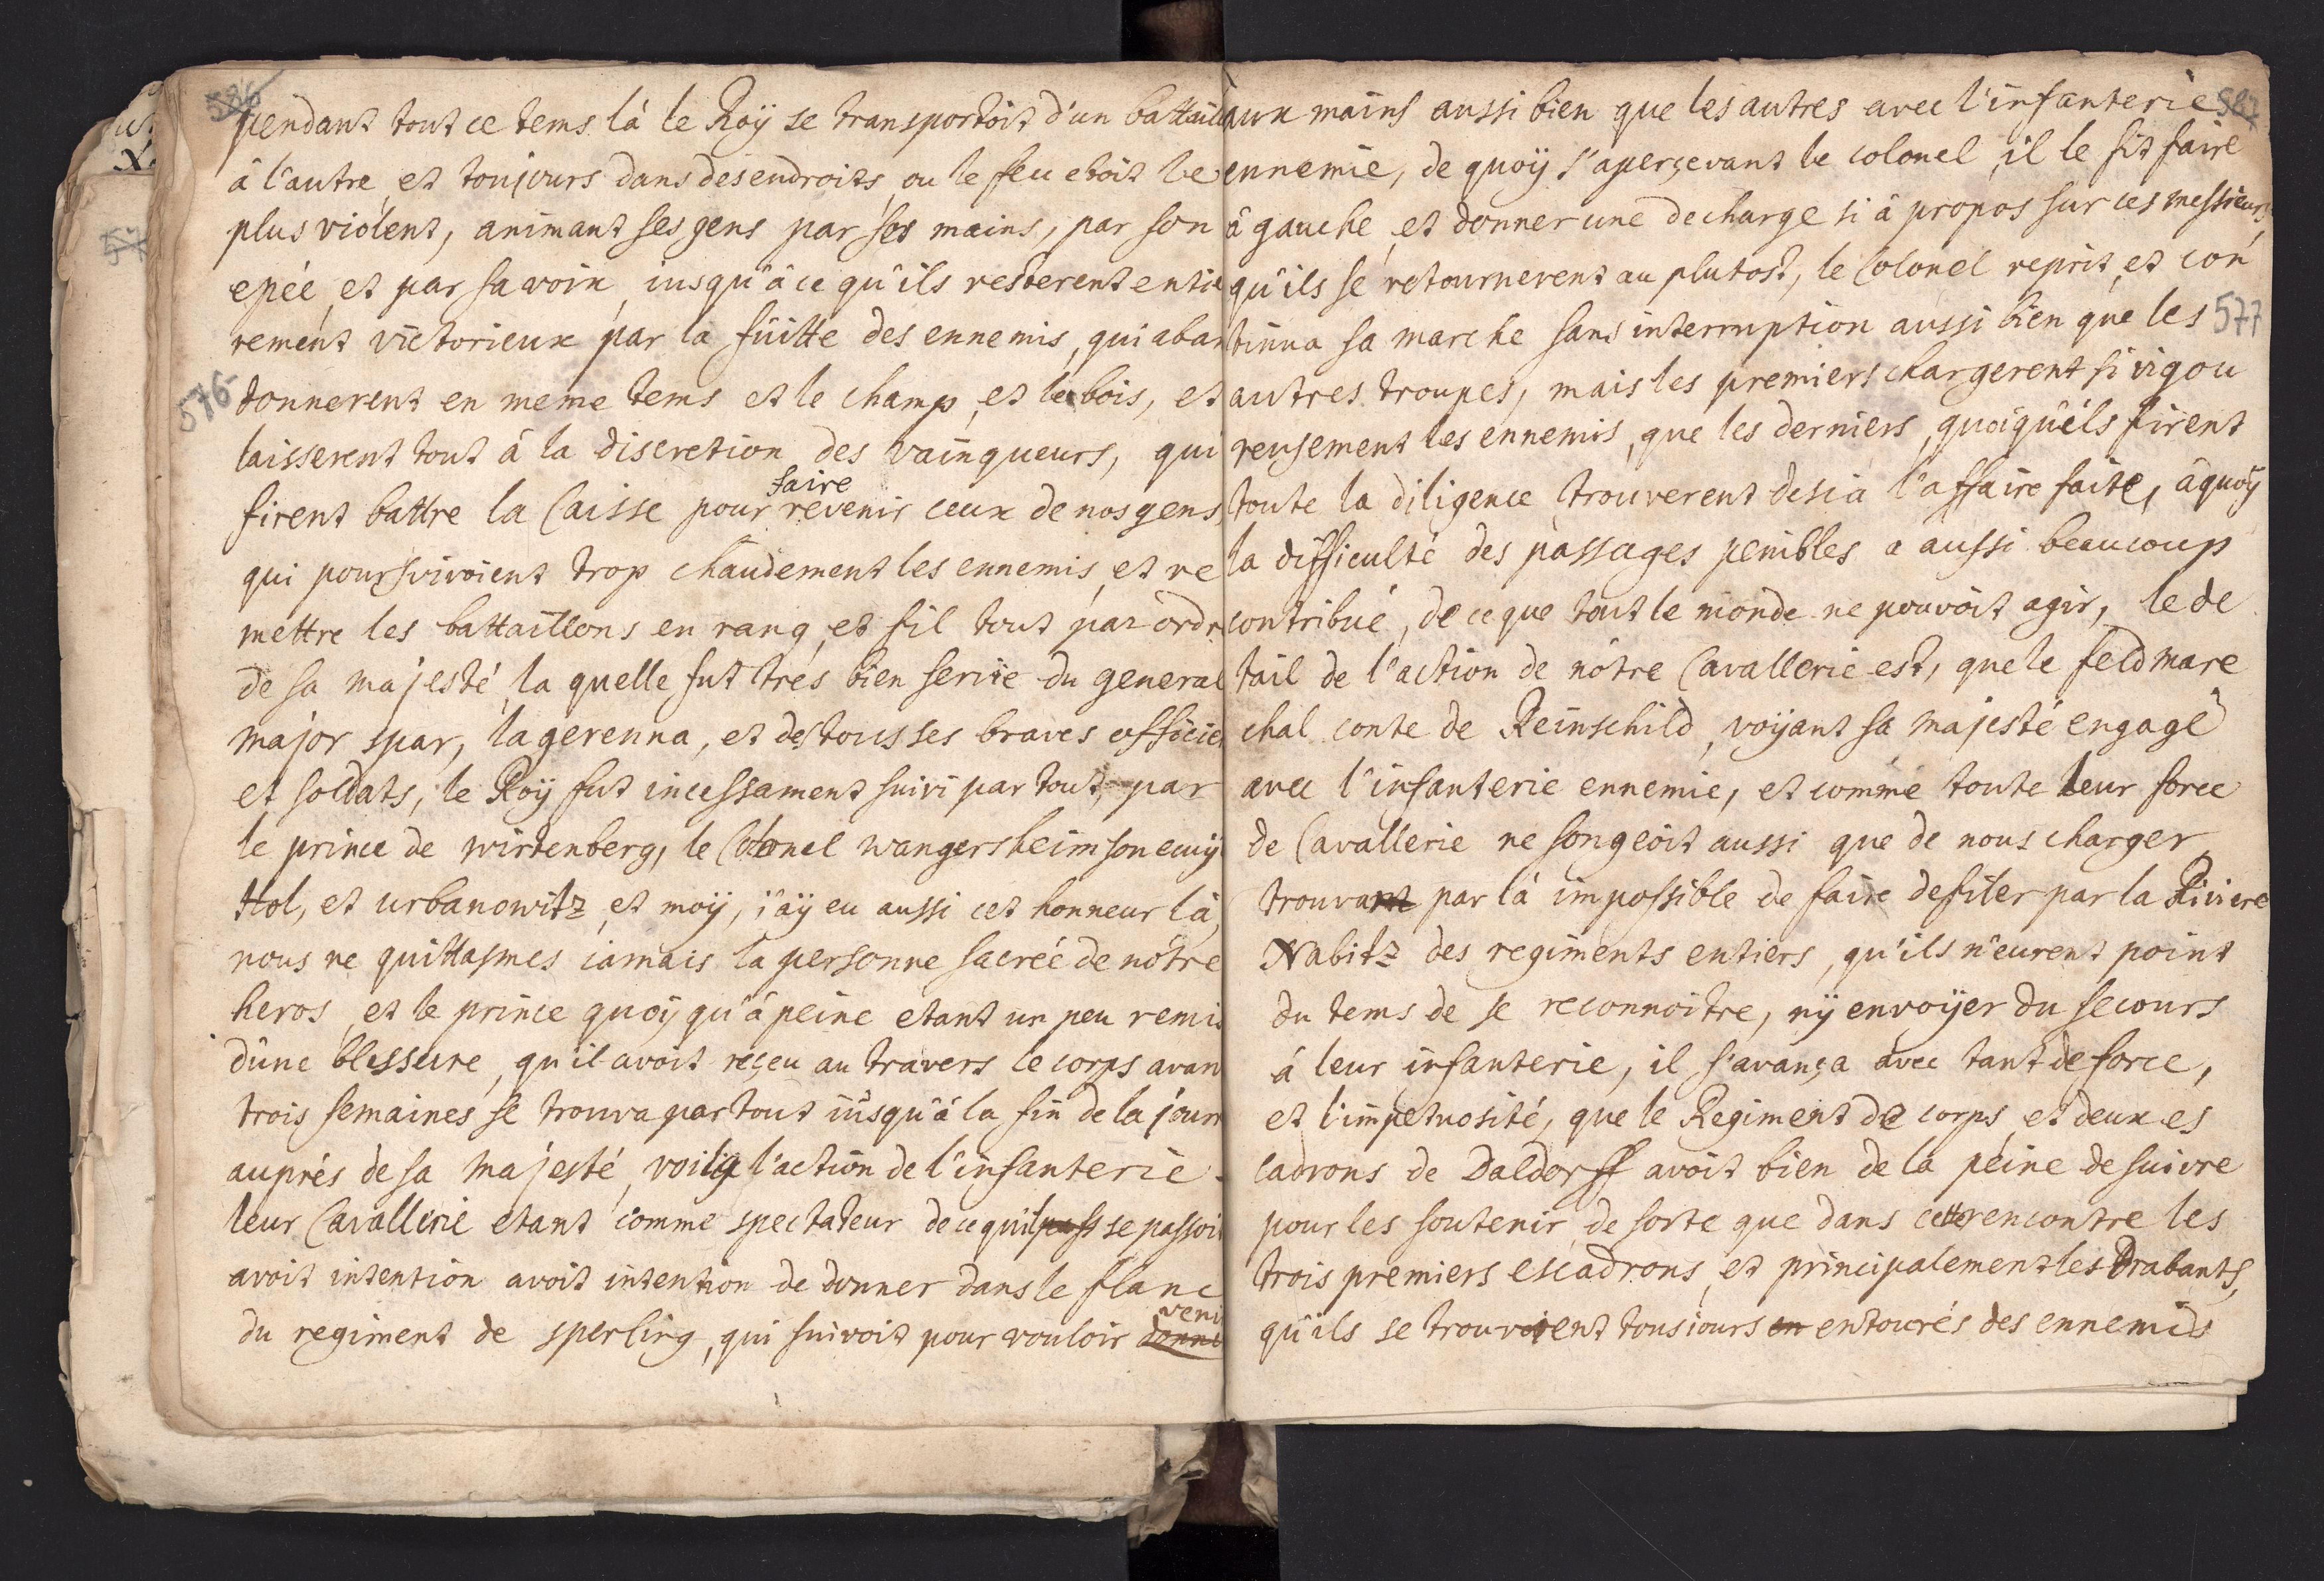 586
pendant tout ce tems là le Roÿ se transportoit d'un battaill
à l'autre, et toujours dans des endroits, ou le feu etoit le
plus violent, animant ses gens par ses mains, par son
epée, et par sa voix, iusqu'à ce qu'ils resterent entie
rement victorieux par la fuitte des ennemis, qui aban
576
donnerent en meme tems et le champ, et le bois, et
laisserent tout à la discretion des vainqueurs, qui
faire
firent battre la Caisse pour revenir ceux de nos gens,
qui poursvivoient trop chaudement les ennemis, et re
mettre les battaillons en rang, et fil tout par ordr
de sa majesté, la quelle fut trés bien servie du general
major spar, lagerenna, et des tous ses braves officie
et soldats, le Roÿ fut incessament suivi par tout, par
le prince de wirtenberg, le Colonel wangersheim son ecuÿ
Hol, et urbanowitz, et moÿ, j'aÿ eu aussi cet honneur là,
nous ne quittasmes iamais la personne sacrée de nótre
heros, et le prince quoÿ qu'à peine etant un peu remis
d'une blessure, qu'il avoit reçeu au travers le corps avan
trois semaines se trouva par tout iusqu'à la fin de la journ
auprés de sa majesté, voila l'action de l'infanterie.
leur Cavallerie etant comme spectateur de ce qu'il pass se passoi
avoit intention avoit intention de donner dans le flanc
veni
du regiment de sperling, qui suivoit pour vouloir donne
587
aux mains aussi bien que les autres avec l'infanterie
ennemie, de quoÿ s'aperçevant le colonel, il le fit faire
à gauche, et donner une decharge si à propos sur ces messieurs,
qu'ils se retournerent au plutost, le Colonel reprit, et con
tinua sa marche sans interruption aussi bien que les
577
autres troupes, mais les premiers chargerent si vigou
reusement les ennemis, que les derniers, quoiqu'ils firent
toute la diligence trouverent desia l'affaire faite, à quoÿ
la difficulté des passages penibles a aussi beaucoup
contribué, de ce que tout le monde ne pouvoit agir, le de
tail de l'action de nótre Cavallerie est, que le feldmare
chal conte de Reinschild, voÿant sa majesté engagé
avec l'infanterie ennemie, et comme toute leur force
de Cavallerie ne songeoit aussi que de nous charger,
trouvant par là impossible de faire defiler par la Riviere
Nabitz des regiments entiers, qu'ils n'eurent point
du tems de se reconnoitre, nÿ envoÿer du secours
á leur infanterie, il s'avança avec tant de force,
et l'impetuosité, que le Regiment de corps, et deux es
cadrons de Daldorff avoit bien de la peine de suivre
pour les soutenir, de sorte que dans cette rencontre les
trois premiers escadrons, et principalement les Drabants,
qu'ils se trouvoient tousiours en entourés des ennemis